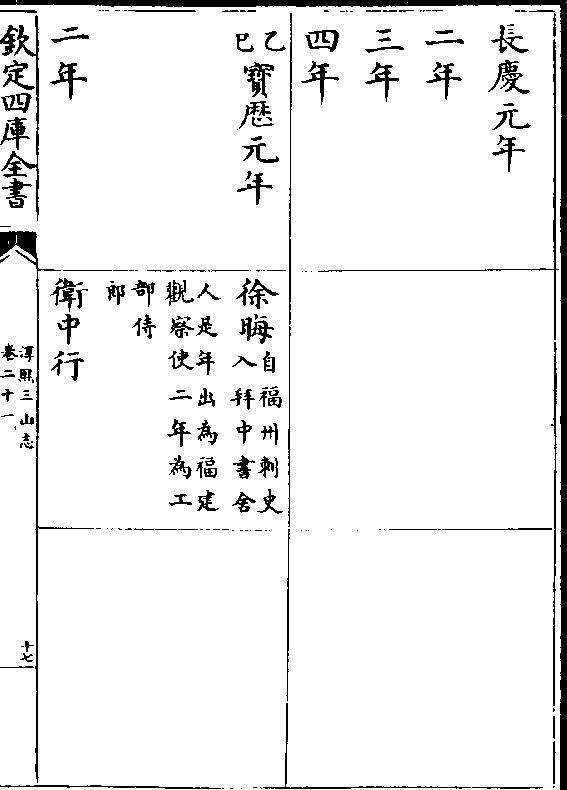 長慶元年
二年
三年
四年
乙巳寶厯元年
徐晦自福州刺史
入拜中書舍
人是年出為福建
觀察使二年為工
部侍
郎
二年
衛中行
欽定四庫全書
淳熙三山志
卷二十一
十七